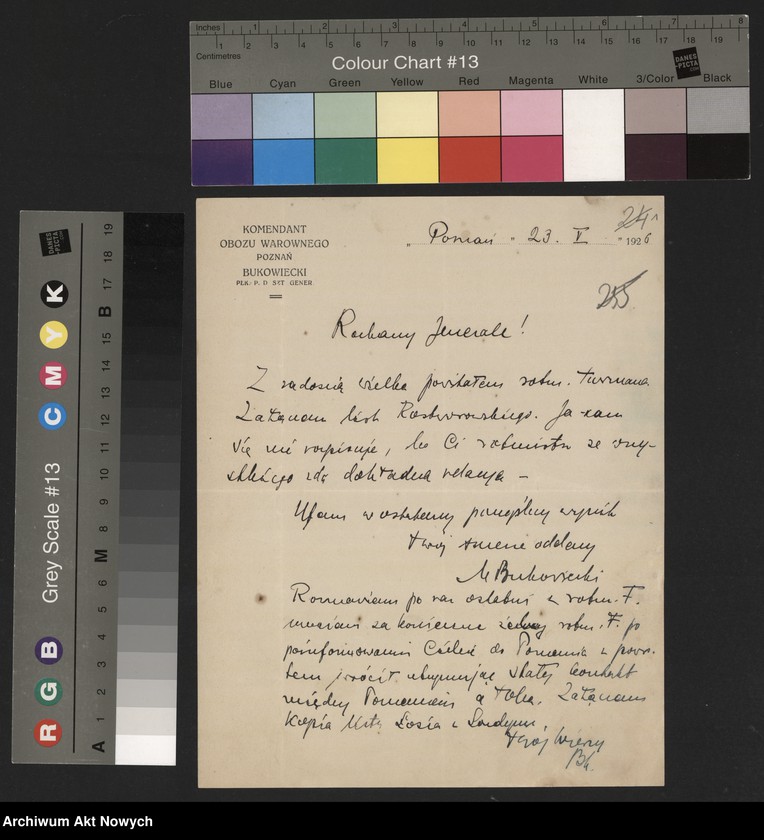 Inches 1 2 3 4 5 6 7 8
Centimetres 1 2 3 4 5 6 7 8 9 10 11 12 13 14 15 16 17 18 19
Colour Chart #13
DANES PICTA .COM
Blue Cyan Green Yellow Red Magenta White 3/Color Black
Grey Scale #13
R G B C M Y K
DANES PICTA .COM
A 1 2 3 4 5 6 M 8 9 10 11 12 13 14 15 B 17 18 19
KOMENDANT
OBOZU WAROWNEGO
POZNAŃ
BUKOWIECKI
PŁK. P. D SZT GENER
„ Poznań " 23. V " 1926
241
255
Kochany Jenerale!
Z radością wielką powitałem rotm.
Załączam list Rostworowskiego. Ja sam
się nie rozpisuję, bo Ci rotmistrz ze wszy-
stkiego zda dokładną relację –
Ufam w ostateczny pomyślny wynik
Twój szczerze oddany
M Bukowiecki
Rozmawiam po raz ostatni z rotm. F.
uważam za konieczne rotm. F. po
poinformowaniu Ciebie do Poznania z powro-
tem wrócił utrzymując stały kontakt
między Poznaniem a Tobą. Załączam
kopię Łosia z Londynu.
Twój wierny
Bk.
Archiwum Akt Nowych